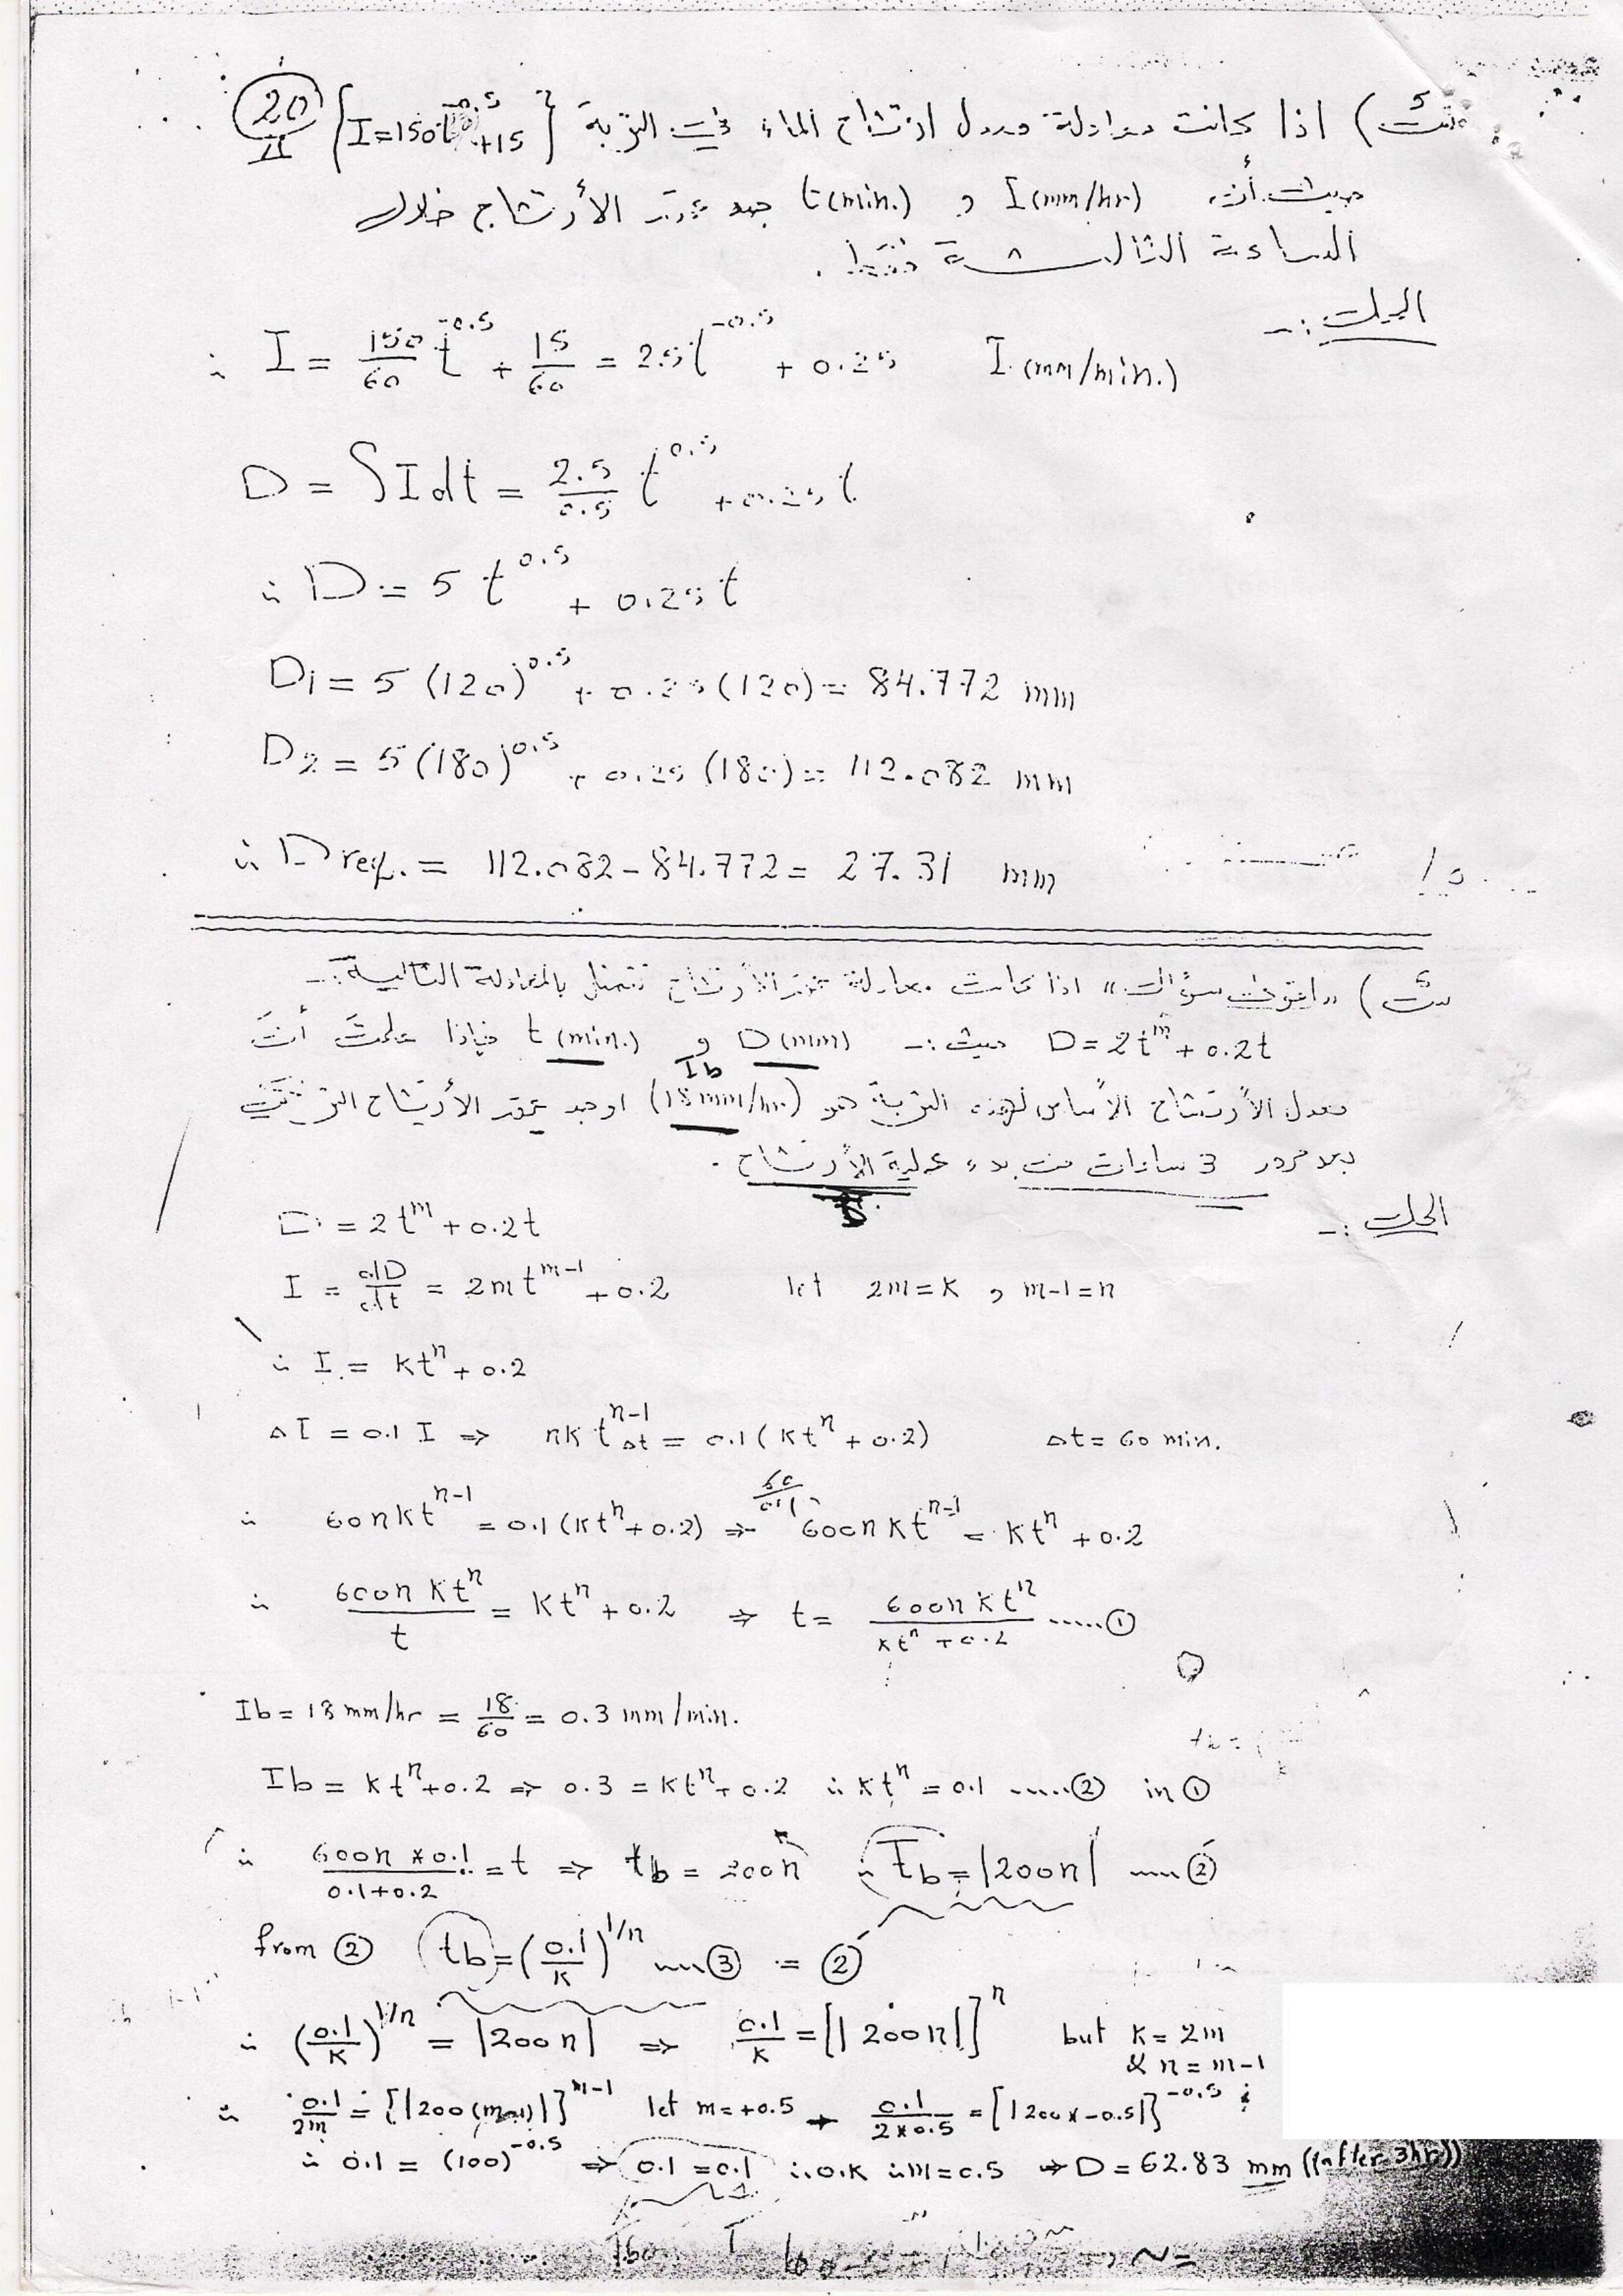 20
س5) اذا كانت معادلة معدل ارتشاح الماء في التربة {I=150t^-0.5 +15}
حيث أن I(mm/hr) و t(min.) جد عمق الأرتشاح خلال
الساعة الثالثة فقط.
الحل :-
∴ I = 150/60 t^-0.5 + 15/60 = 2.5t^-0.5 + 0.25 I (mm/min.)
D = ∫I dt = 2.5/0.5 t^0.5 + 0.25t
∴ D = 5 t^0.5 + 0.25t
D1 = 5 (120)^0.5 + 0.25(120) = 84.772 mm
D2 = 5 (180)^0.5 + 0.25(180) = 112.082 mm
∴ Dreq. = 112.082 - 84.772 = 27.31 mm
"اقوى سؤال" اذا كانت معادلة عمق الأرتشاح تتمثل بالمعادلة التالية:-
D=2t^m+0.2t حيث :- D(mm) و t(min.) فإذا علمت أن
Ib
معدل الأرتشاح الأساس لهذه التربة هو (18mm/hr) اوجد عمق الأرتشاح
بعد مرور 3 ساعات من بدء عملية الأرتشاح.
الحل :-
D = 2t^m + 0.2t
I = dD/dt = 2mt^m-1 + 0.2 let 2m=k , m-1=n
∴ I = kt^n + 0.2
ΔI = 0.1 I ⇒ nk t^n-1 Δt = 0.1(kt^n + 0.2) Δt= 60 min.
∴ 60nkt^n-1 = 0.1(kt^n+0.2) ⇒ 600nkt^n-1 = kt^n + 0.2
60/0.1
∴ 600n kt^n/t = kt^n + 0.2 ⇒ t = 600n kt^n/kt^n + 0.2 .....①
Ib = 18 mm/hr = 18/60 = 0.3 mm/min.
Ib = kt^n+0.2 ⇒ 0.3 = kt^n+0.2 ∴ kt^n = 0.1 .....② in ①
∴ 600n*0.1/0.1+0.2 = t ⇒ tb = 200n ∴ tb = |200n| ...②'
from ② tb = (0.1/k)^1/n ...③ = ②'
∴ (0.1/k)^1/n = |200n| ⇒ 0.1/k = [|200n|]^n but k = 2m
& n = m-1
∴ 0.1/2m = [|200(m-1)|]^m-1 let m=+0.5 → 0.1/2*0.5 = [|200x-0.5|]^-0.5
∴ 0.1 = (100)^-0.5 ⇒ 0.1=0.1 ∴ o.k ∴ m=0.5 ⇒ D = 62.83 mm ((after 3hr))